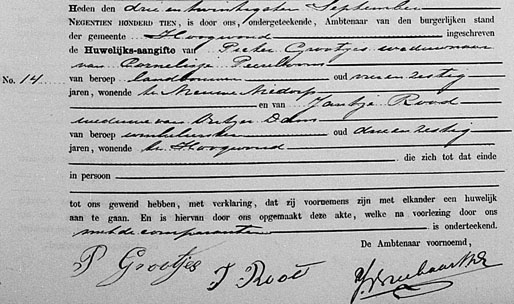 Heden den drie en twintigsten September
Negentien honderd tien, is door ons, ondergeteekende, Ambtenaar van den burgerlijken stand
der gemeente Hoogwoud ingeschreven
de Huwelijks-aangifte van Pieter Grootjes weduwnaar
van Cornelisje
No. 14. van beroep landbouwer oud en zestig
jaren, wonende te Nieuwe Niedorp
en van Jantje Rood
weduwe van Dam
van beroep winkelierster oud drie en zestig
jaren, wonende te Hoogwoud
die zich tot dat einde
in persoon
tot ons gewend hebben, met verklaring, dat zij voornemens zijn met elkander een huwelijk
aan te gaan. En is hiervan door ons opgemaakt deze akte, welke na voorlezing door ons
met de comparanten is onderteekend.
De Ambtenaar voornoemd,
P Grootjes J. Rood